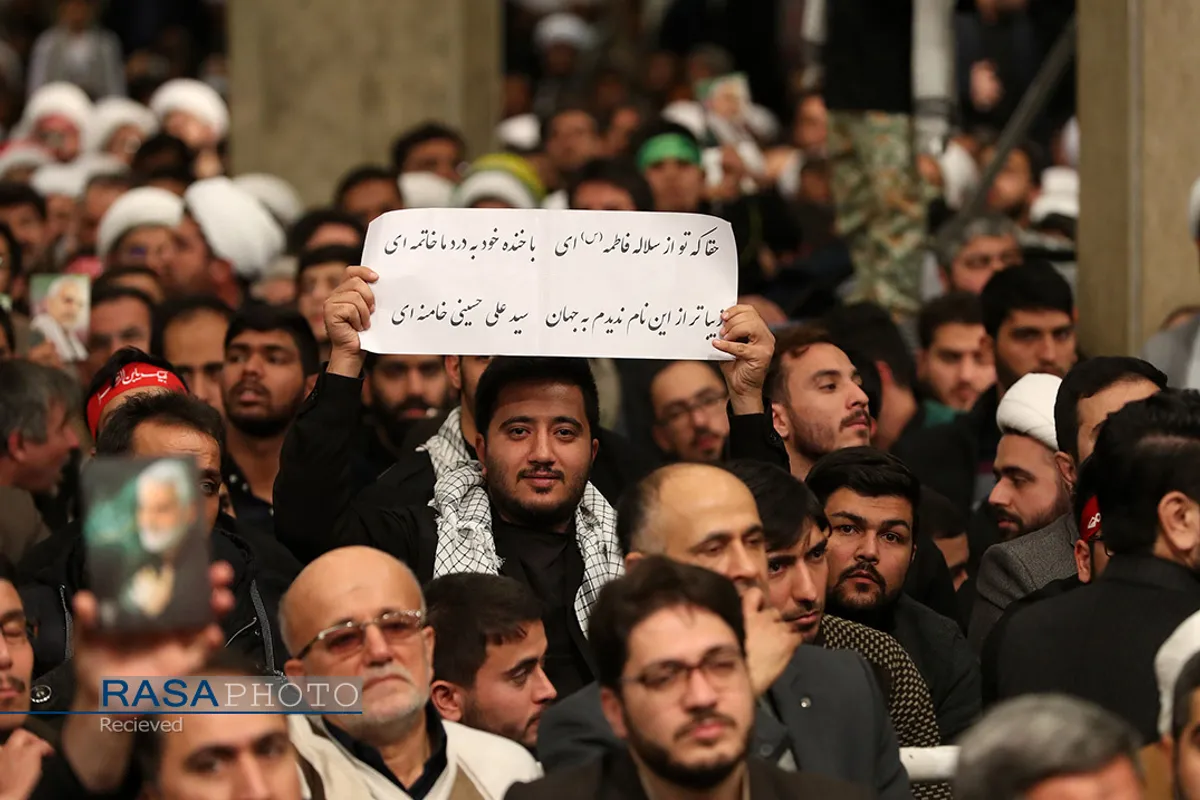 حقا که تو از سلاله فاطمه (س) ای با خنده خود به درد ما خاتمه ای
زیباتر از این نام ندیدم به جهان سید علی حسینی خامنه ای
RASAPHOTO
Recieved